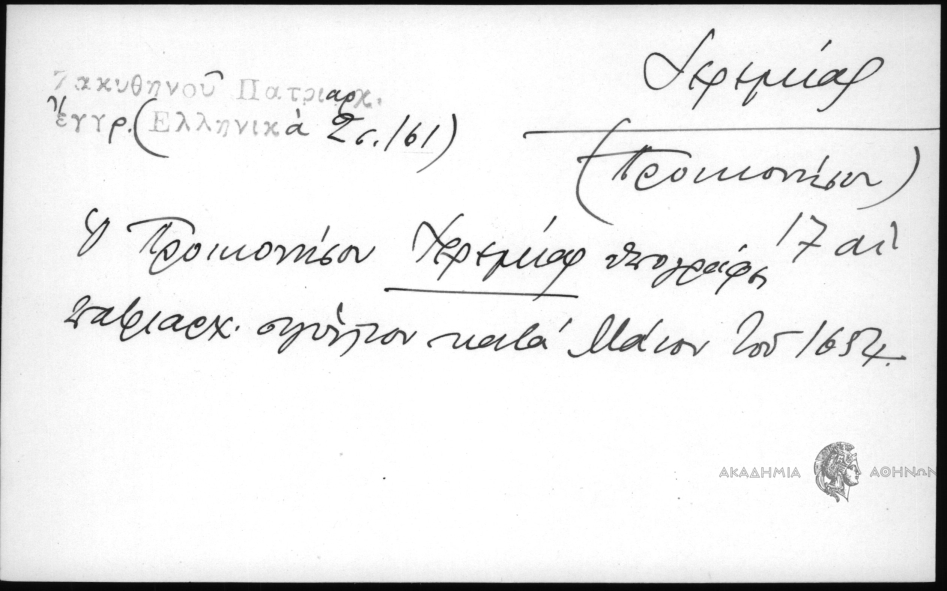 Ζακυθηνοῦ Πατριαρχ.
ἔγγρ. (Ἑλληνικὰ 2 σ. 161)
Ἱερεμίας
(Προικονήσου)
17 αἰ
Ὁ Προικονήσου Ἱερεμίας ὑπογράφει
πατριαρχ. σιγίλλιον κατὰ Μάϊον τοῦ 1654.
ΑΚΑΔΗΜΙΑ ΑΘΗΝΩΝ